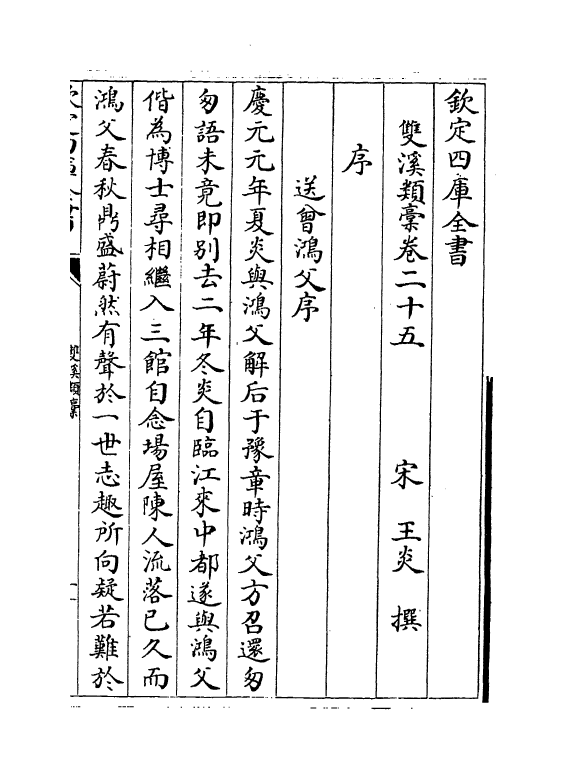 欽定四庫全書
雙溪類稾卷二十五 宋 王炎 撰
序
送曾鴻父序
慶元元年夏炎與鴻父解后于豫章時鴻父方召還匆
匆語未竟即别去二年冬炎自臨江來中都遂與鴻父
偕為博士尋相繼入三館自念場屋陳人流落已久而
鴻父春秋鼎盛蔚然有聲於一世志趣所向疑若難於
雙溪類稾
一